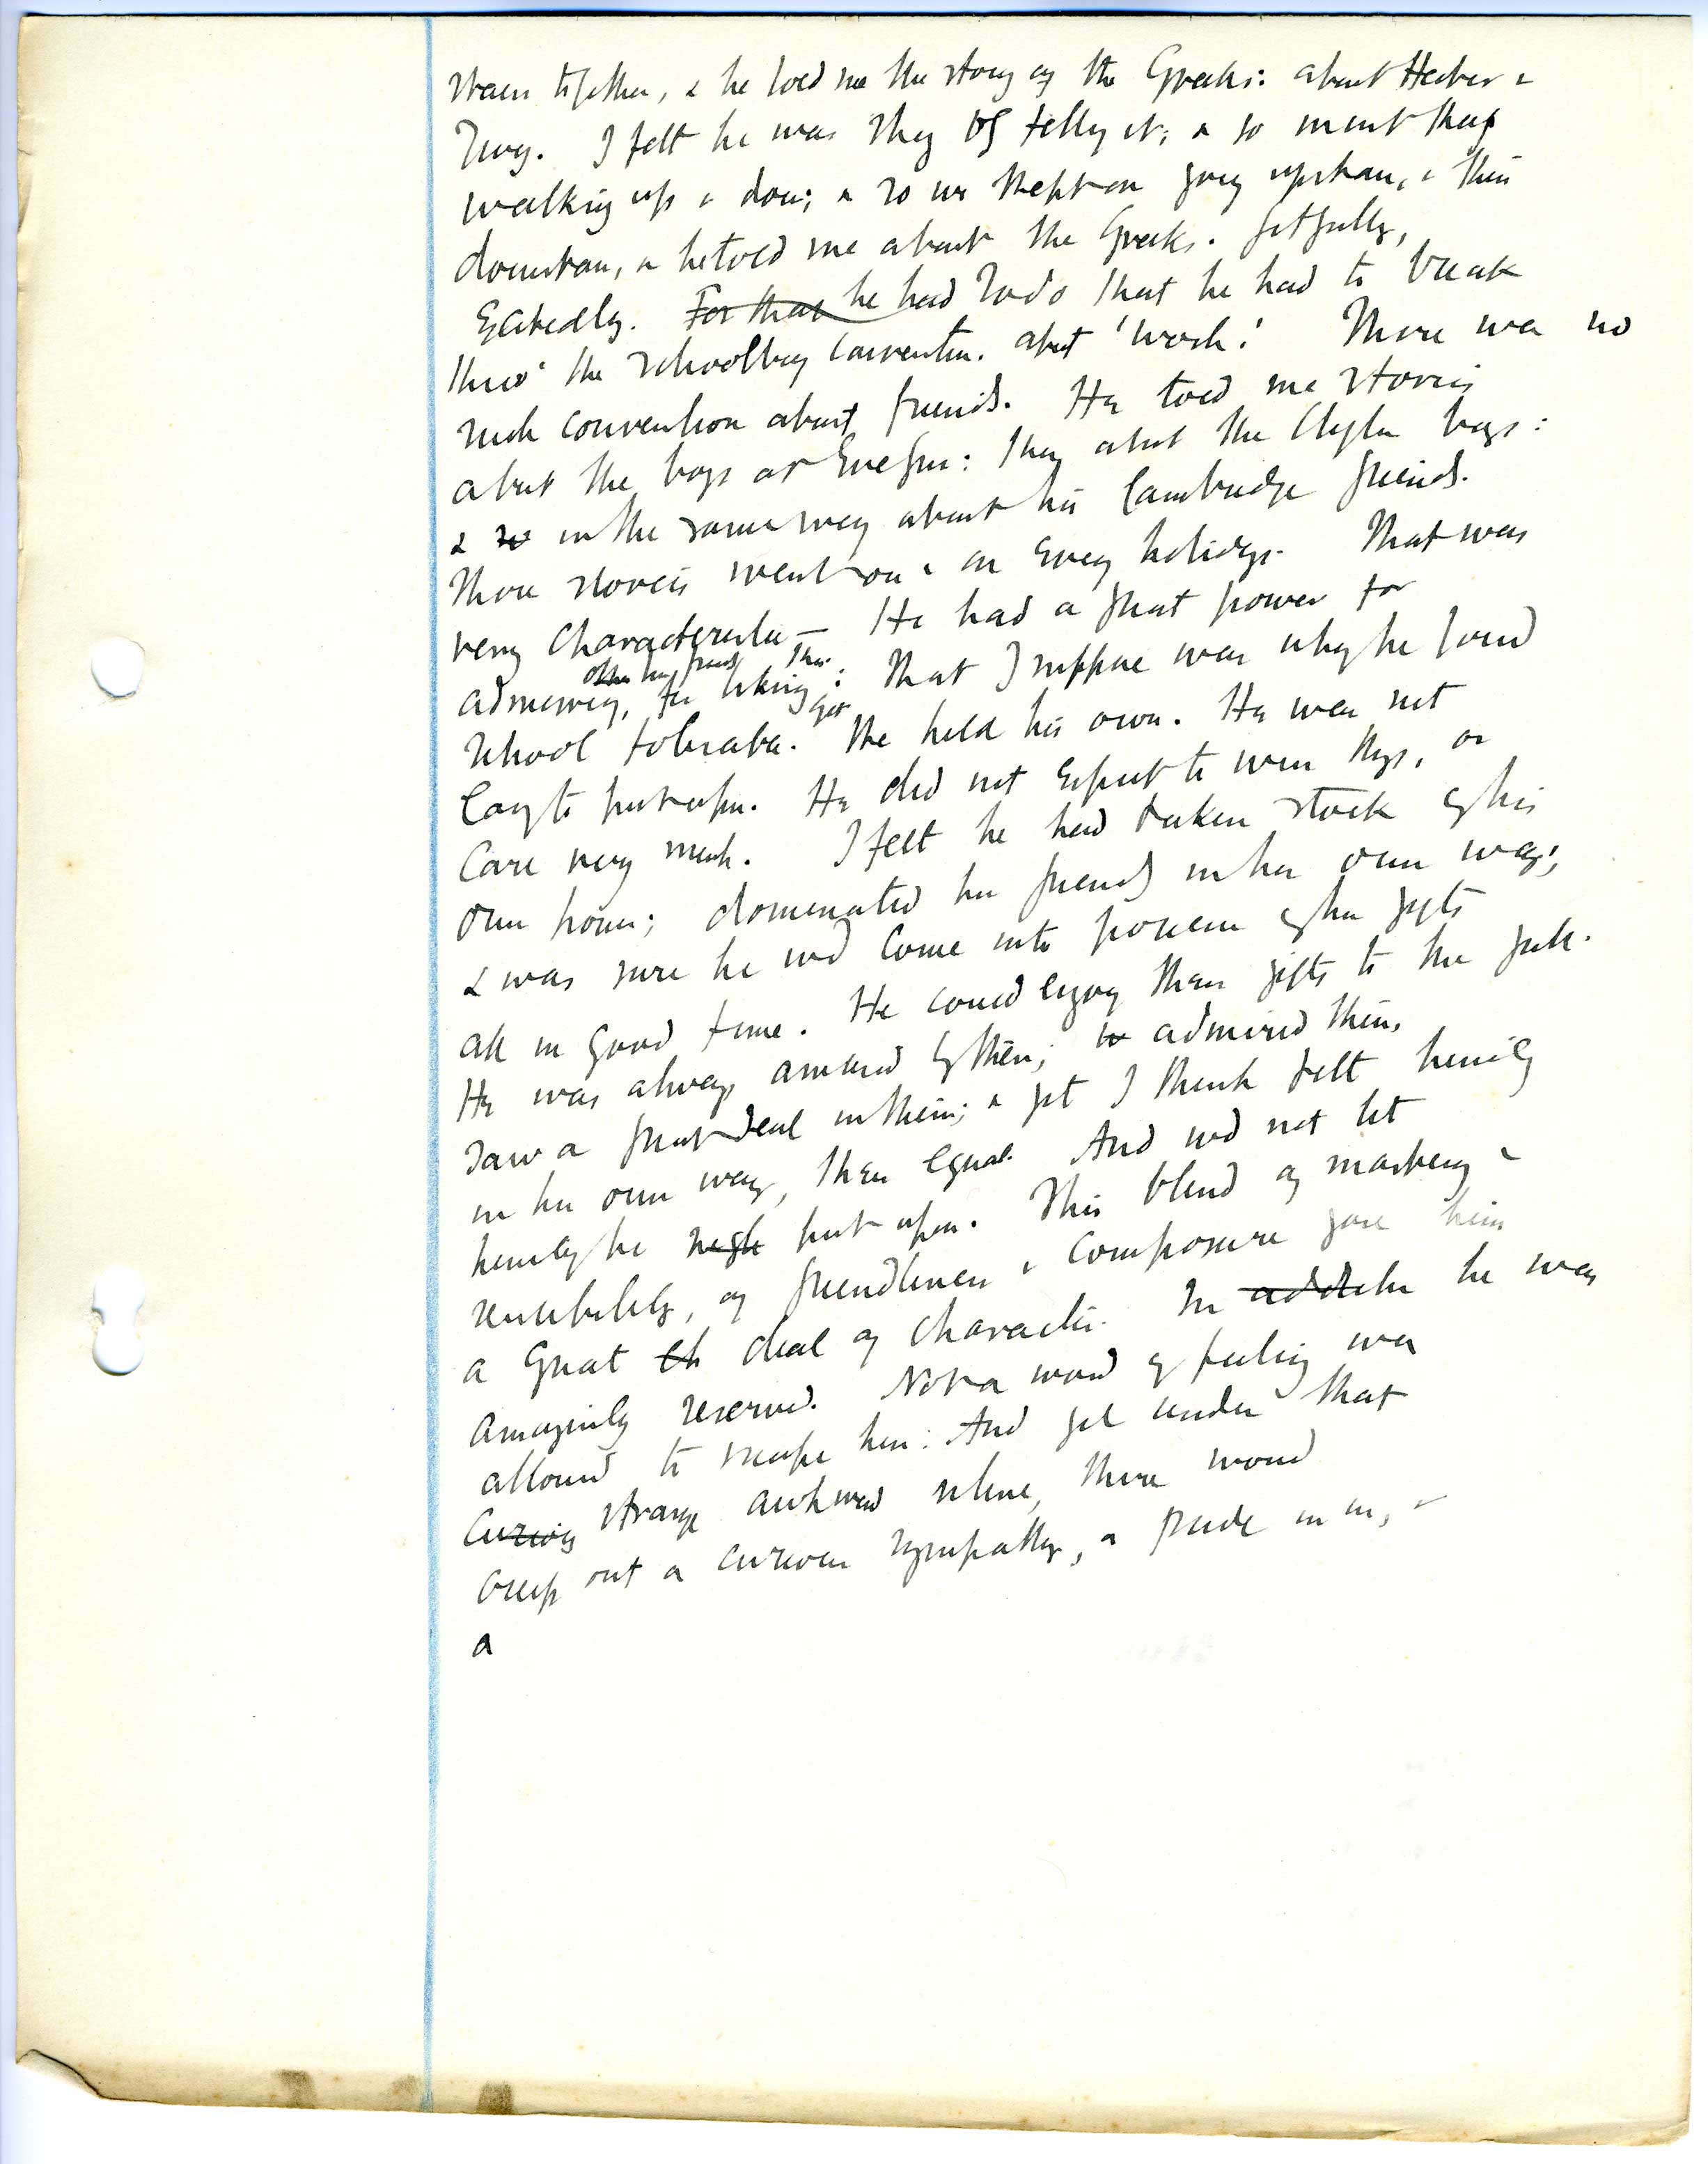 stairs together, & he told me the story of the Greeks: about Hector &
Troy. I felt he was shy of telling it; & so must keep
walking up & down; & so we kept on going upstairs, & then
downstairs, & he told me about the Greeks. fitfully,
Excitedly. For that he had to do that he had to break
thro' the schoolboy convention. about 'work'. There was no
such convention about friends. He told me stories
about the boys at Evelyns: then about the Clifton boys:
& so in the same way about his Cambridge friends.
Those stories went on & on every holidays. That was
very characteristic — He had a great power for
admiring, his friends for liking them: That I suppose was why he found
school tolerable. Yet he held his own. He was not
easy to put upon. He did not expect to win things, or
care very much. I felt he had taken stock of his
own powers; dominated his friends in his own way;
& was sure he wd come into possession of his gifts
all in good time. He could enjoy their gifts to the full.
He was always amused by them; admired them,
saw a great deal in them; & yet I think felt himself
in his own way, their equal. And wd not let
himself be put upon. This blend of mastery &
sensibility, of friendliness & composure gave him
a great ch deal of character. In addition he was
amazingly reserved. Not a word of feeling was
allowed to escape him. And yet under that
curious strange awkward silence, there would
creep out a curious sympathy, a pride in us, &
a